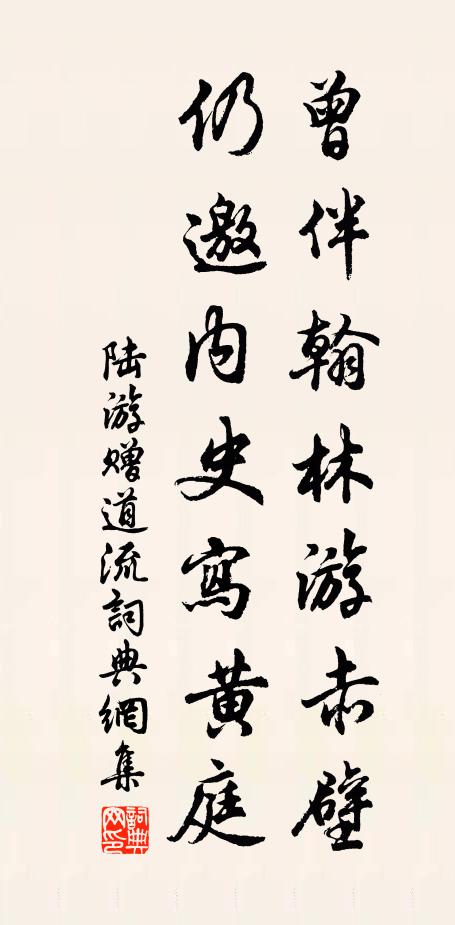 曾伴翰林游赤壁
仍邀内史寫黄庭
陆游赠道流詞典網集
詞典网印